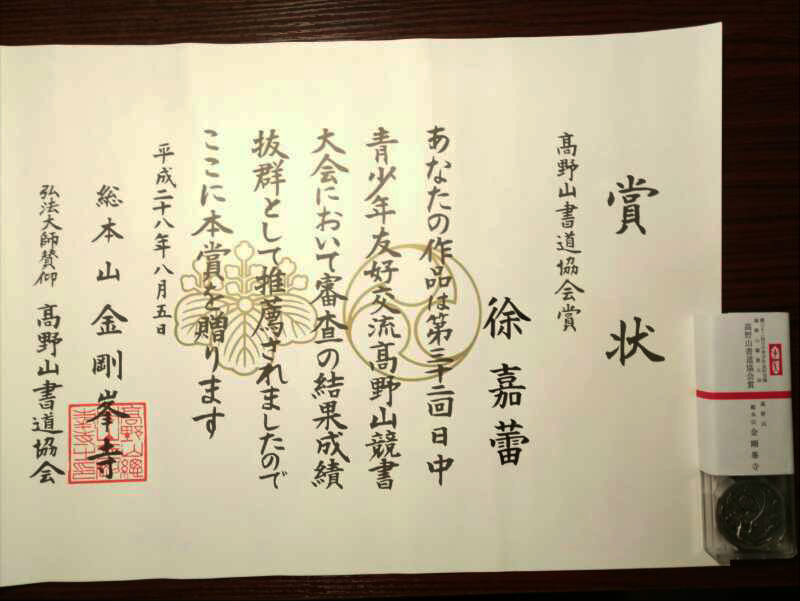 賞状
髙野山書道協会賞
徐嘉蕾
あなたの作品は第三十二回日中
青少年友好交流髙野山競書
大会において審査の結果成績
抜群として推薦されましたので
ここに本賞を贈ります
平成二十八年八月五日
総本山金剛峯寺
弘法大師賛仰 髙野山書道協会
高野山書道協会賞
高野山
総本山 金剛峯寺